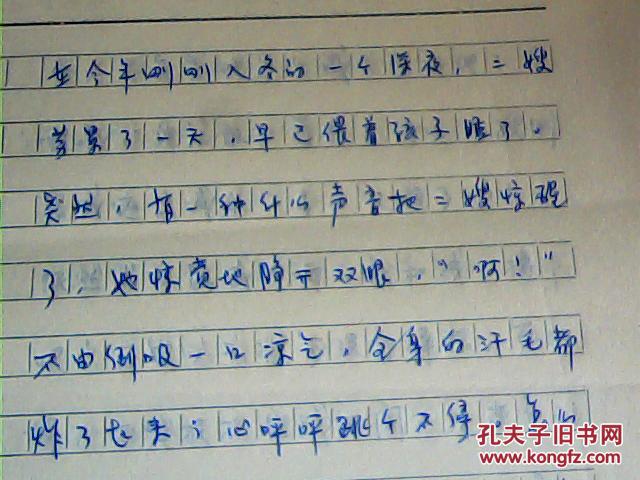 在今年刚刚入冬的一个深夜，二嫂
劳累了一天，早已偎着孩子睡了。
突然，有一种什么声音把二嫂惊醒
了，她惊觉地睁开双眼，“啊！”
不由倒吸一口凉气，全身的汗毛都
炸了起来；心呯呯跳个不停。怎么
孔夫子旧书网
www.kongfz.com